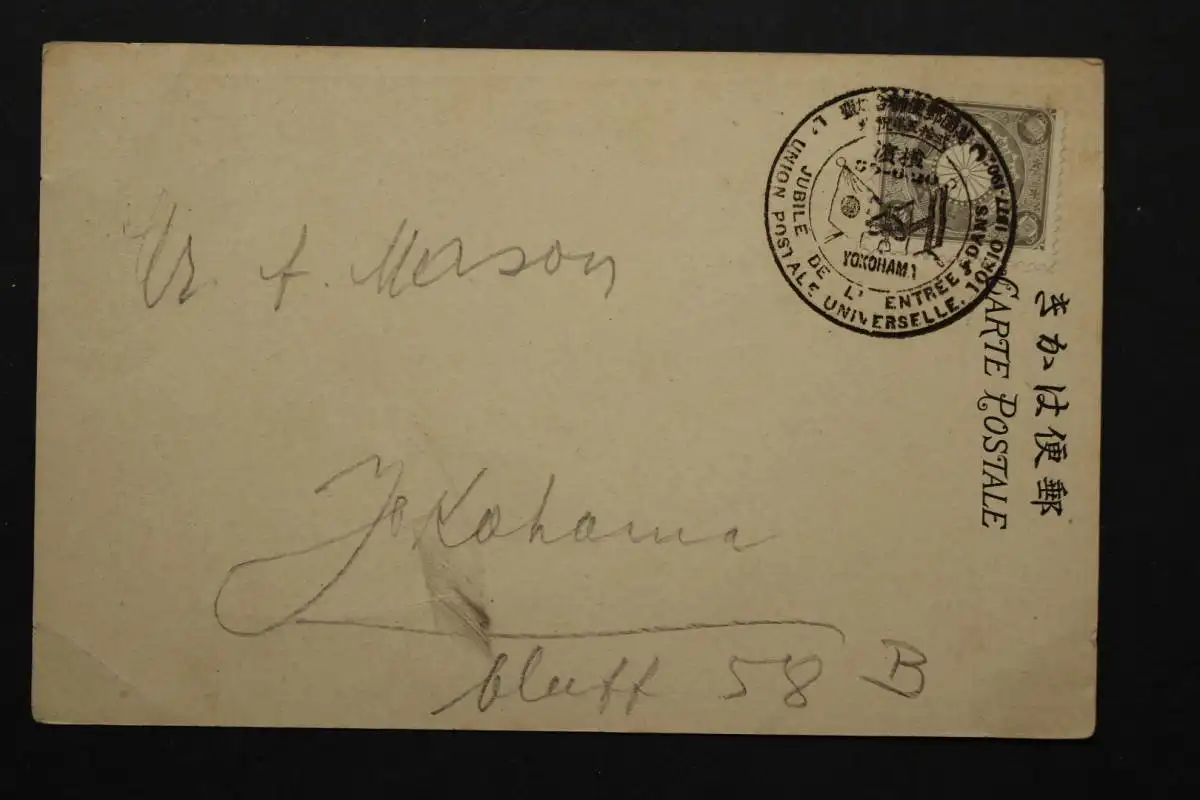 きかは便郵
CARTE POSTALE
JUBILE DE L' ENTRÉE DANS
L' UNION POSTALE UNIVERSELLE. TOKIO 1877-1902
横濱
YOKOHAMA
Mr. A. Merson
Yokohama
bluff 58 B